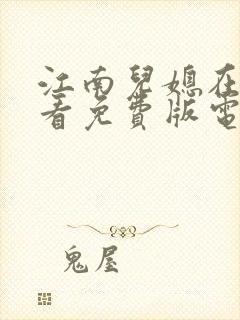 江南兒媳在
看免費版電
鬼屋